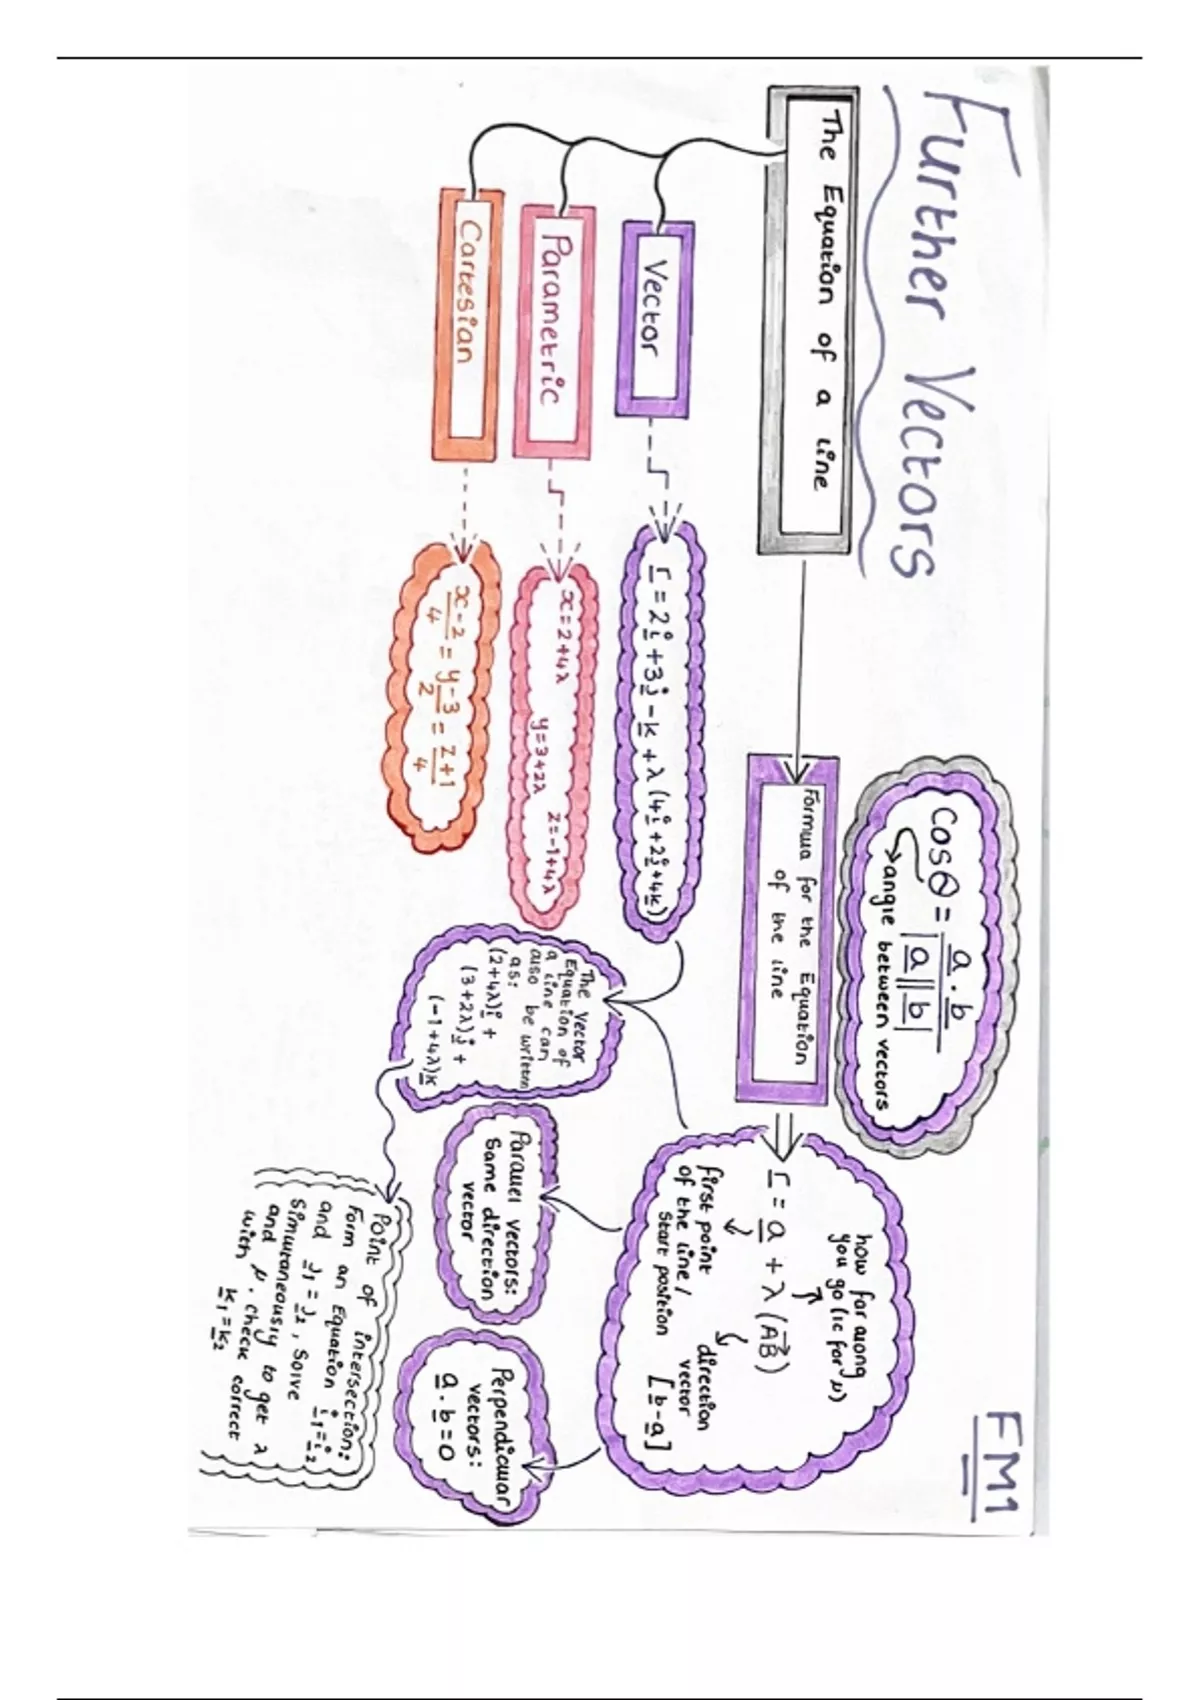 Further Vectors
FM1
The Equation of a line
Vector
Parametric
Cartesian
r = 2i + 3j - k + λ (4i + 2j + 4k)
x = 2+4λ
y = 3+2λ
z = -1+4λ
x-2/4 = y-3/2 = z+1/4
Cosθ = a . b / |a||b|
angle between vectors
Formula for the Equation
of the line
how far along
you go (ic for μ)
r = a + λ (AB)
first point
of the line /
Start position
direction
vector
[b-a]
The Vector
Equation of
a line can
also be written
as:
(2+4λ)i +
(3+2λ)j +
(-1+4λ)k
Parallel vectors:
Same direction
vector
Perpendicular
vectors:
a . b = 0
Point of intersection:
Form an Equation i₁=i₂
and j₁=j₂, solve
simultaneously to get λ
and μ. check correct
with k₁=k₂